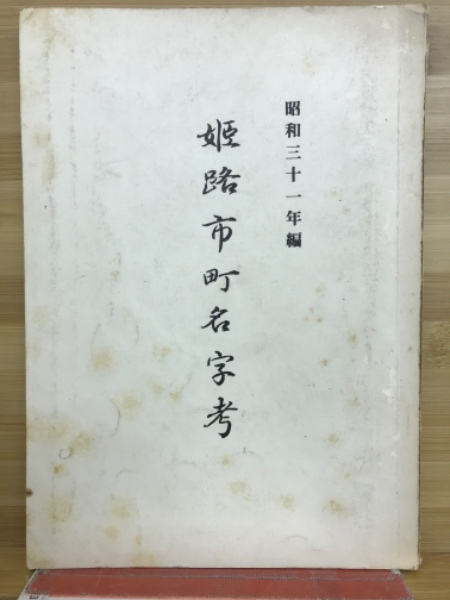 昭和三十一年編
姫路市町名字考